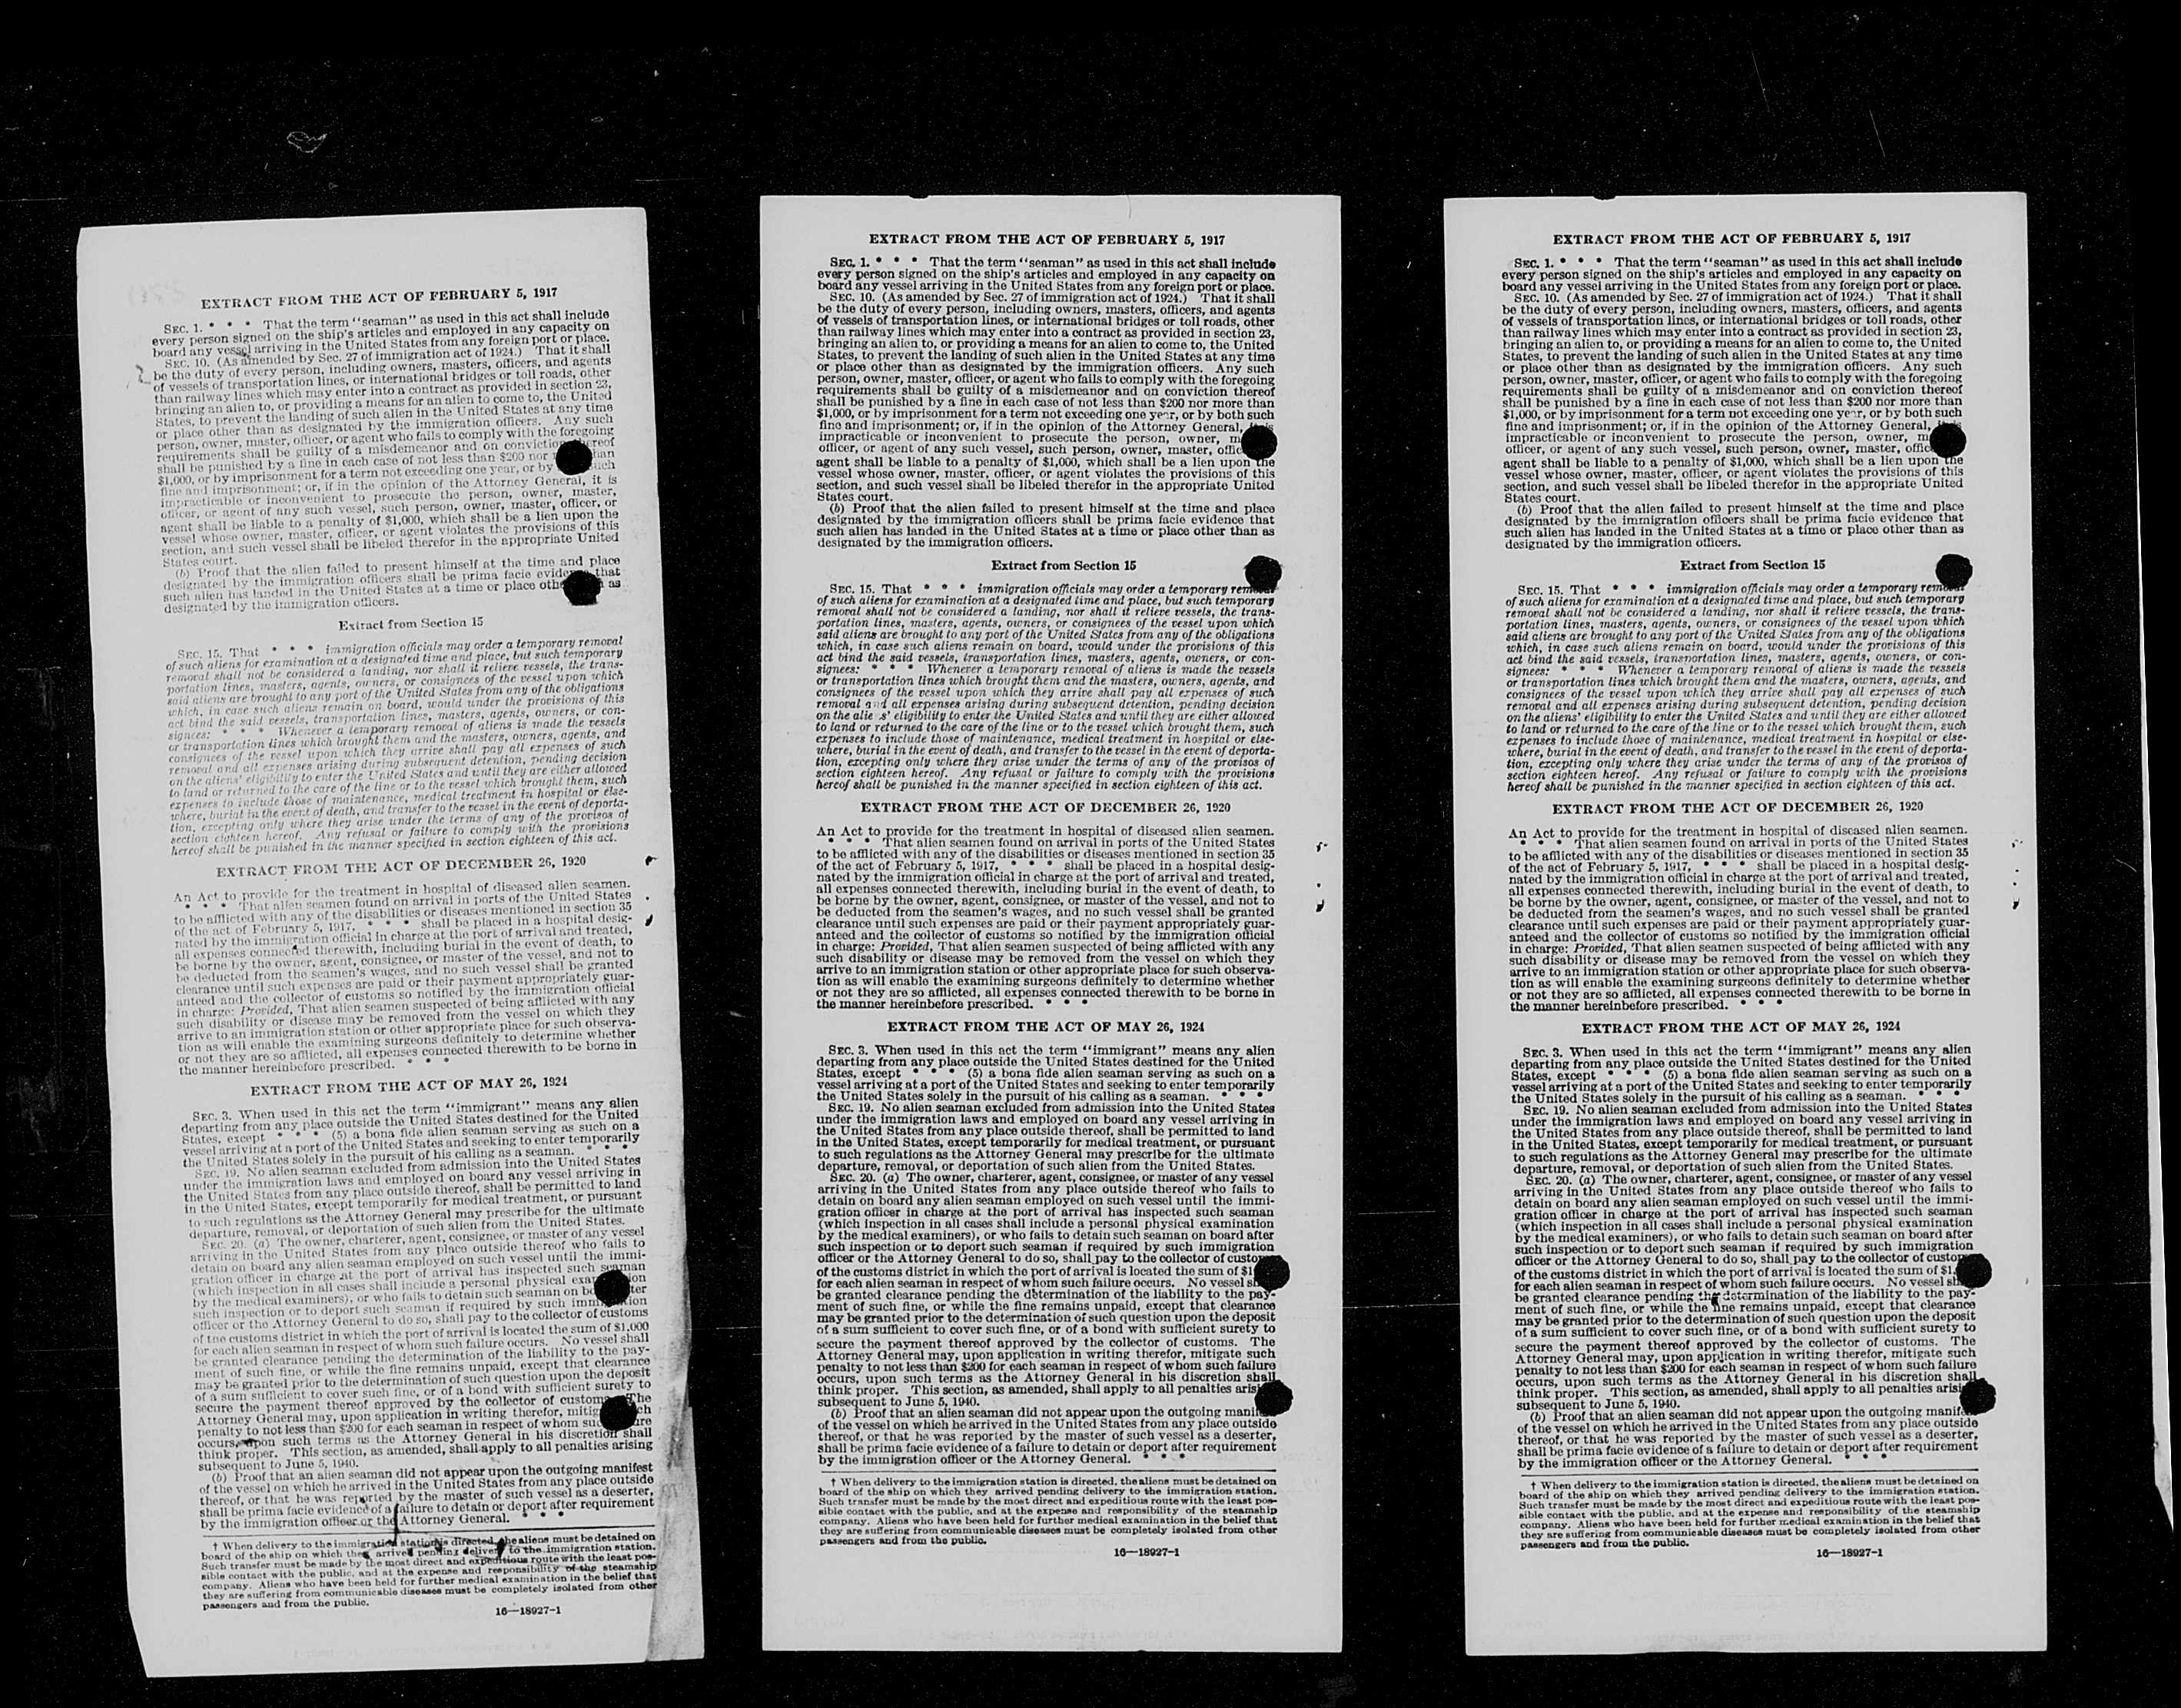 EXTRACT FROM THE ACT OF FEBRUARY 5, 1917
SEC. 1. * * * That the term "seaman" as used in this act shall include
every person signed on the ship's articles and employed in any capacity on
board any vessel arriving in the United States from any foreign port or place.
SEC. 10. (As amended by Sec. 27 of immigration act of 1924.) That it shall
be the duty of every person, including owners, masters, officers, and agents
of vessels of transportation lines, or international bridges or toll roads, other
than railway lines which may enter into a contract as provided in section 23,
bringing an alien to, or providing a means for an alien to come to, the United
States, to prevent the landing of such alien in the United States at any time
or place other than as designated by the immigration officers. Any such
person, owner, master, officer, or agent who fails to comply with the foregoing
requirements shall be guilty of a misdemeanor and on conviction thereof
shall be punished by a fine in each case of not less than $200 nor than
$1,000, or by imprisonment for a term not exceeding one year, or by such
fine and imprisonment; or, if in the opinion of the Attorney General, it is
impracticable or inconvenient to prosecute the person, owner, master,
officer, or agent of any such vessel, such person, owner, master, officer, or
agent shall be liable to a penalty of $1,000, which shall be a lien upon the
vessel whose owner, master, officer, or agent violates the provisions of this
section, and such vessel shall be libeled therefor in the appropriate United
States court.
(b) Proof that the alien failed to present himself at the time and place
designated by the immigration officers shall be prima facie evidence that
such alien has landed in the United States at a time or place other as
designated by the immigration officers.
Extract from Section 15
SEC. 15. That * * * immigration officials may order a temporary removal
of such aliens for examination at a designated time and place, but such temporary
removal shall not be considered a landing, nor shall it relieve vessels, the trans-
portation lines, masters, agents, owners, or consignees of the vessel upon which
said aliens are brought to any port of the United States from any of the obligations
which, in case such aliens remain on board, would under the provisions of this
act bind the said vessels, transportation lines, masters, agents, owners, or con-
signees: * * * Whenever a temporary removal of aliens is made the vessels
or transportation lines which brought them and the masters, owners, agents, and
consignees of the vessel upon which they arrive shall pay all expenses of such
removal and all expenses arising during subsequent detention, pending decision
on the aliens' eligibility to enter the United States and until they are either allowed
to land or returned to the care of the line or to the vessel which brought them, such
expenses to include those of maintenance, medical treatment in hospital or else-
where, burial in the event of death, and transfer to the vessel in the event of deporta-
tion, excepting only where they arise under the terms of any of the provisos of
section eighteen hereof. Any refusal or failure to comply with the provisions
hereof shall be punished in the manner specified in section eighteen of this act.
EXTRACT FROM THE ACT OF DECEMBER 26, 1920
An Act to provide for the treatment in hospital of diseased alien seamen.
* * * That alien seamen found on arrival in ports of the United States
to be afflicted with any of the disabilities or diseases mentioned in section 35
of the act of February 5, 1917, * * * shall be placed in a hospital desig-
nated by the immigration official in charge at the port of arrival and treated,
all expenses connected therewith, including burial in the event of death, to
be borne by the owner, agent, consignee, or master of the vessel, and not to
be deducted from the seamen's wages, and no such vessel shall be granted
clearance until such expenses are paid or their payment appropriately guar-
anteed and the collector of customs so notified by the immigration official
in charge: Provided, That alien seamen suspected of being afflicted with any
such disability or disease may be removed from the vessel on which they
arrive to an immigration station or other appropriate place for such observa-
tion as will enable the examining surgeons definitely to determine whether
or not they are so afflicted, all expenses connected therewith to be borne in
the manner hereinbefore prescribed. * * *
EXTRACT FROM THE ACT OF MAY 26, 1924
SEC. 3. When used in this act the term "immigrant" means any alien
departing from any place outside the United States destined for the United
States, except * * * (5) a bona fide alien seaman serving as such on a
vessel arriving at a port of the United States and seeking to enter temporarily
the United States solely in the pursuit of his calling as a seaman. * * *
SEC. 19. No alien seaman excluded from admission into the United States
under the immigration laws and employed on board any vessel arriving in
the United States from any place outside thereof, shall be permitted to land
in the United States, except temporarily for medical treatment, or pursuant
to such regulations as the Attorney General may prescribe for the ultimate
departure, removal, or deportation of such alien from the United States.
SEC. 20. (a) The owner, charterer, agent, consignee, or master of any vessel
arriving in the United States from any place outside thereof who fails to
detain on board any alien seaman employed on such vessel until the immi-
gration officer in charge at the port of arrival has inspected such seaman
(which inspection in all cases shall include a personal physical examination
by the medical examiners), or who fails to detain such seaman on board after
such inspection or to deport such seaman if required by such immigration
officer or the Attorney General to do so, shall pay to the collector of customs
of the customs district in which the port of arrival is located the sum of $1,000
for each alien seaman in respect of whom such failure occurs. No vessel shall
be granted clearance pending the determination of the liability to the pay-
ment of such fine, or while the fine remains unpaid, except that clearance
may be granted prior to the determination of such question upon the deposit
of a sum sufficient to cover such fine, or of a bond with sufficient surety to
secure the payment thereof approved by the collector of customs. The
Attorney General may, upon application in writing therefor, mitigate such
penalty to not less than $200 for each seaman in respect of whom such failure
occurs, upon such terms as the Attorney General in his discretion shall
think proper. This section, as amended, shall apply to all penalties arising
subsequent to June 5, 1940.
(b) Proof that an alien seaman did not appear upon the outgoing manifest
of the vessel on which he arrived in the United States from any place outside
thereof, or that he was reported by the master of such vessel as a deserter,
shall be prima facie evidence of a failure to detain or deport after requirement
by the immigration officer or the Attorney General. * * *
† When delivery to the immigration station is directed, the aliens must be detained on
board of the ship on which they arrived pending delivery to the immigration station.
Such transfer must be made by the most direct and expeditious route with the least pos-
sible contact with the public, and at the expense and responsibility of the steamship
company. Aliens who have been held for further medical examination in the belief that
they are suffering from communicable diseases must be completely isolated from other
passengers and from the public.
16—18927-1
EXTRACT FROM THE ACT OF FEBRUARY 5, 1917
SEC. 1. * * * That the term "seaman" as used in this act shall include
every person signed on the ship's articles and employed in any capacity on
board any vessel arriving in the United States from any foreign port or place.
SEC. 10. (As amended by Sec. 27 of immigration act of 1924.) That it shall
be the duty of every person, including owners, masters, officers, and agents
of vessels of transportation lines, or international bridges or toll roads, other
than railway lines which may enter into a contract as provided in section 23,
bringing an alien to, or providing a means for an alien to come to, the United
States, to prevent the landing of such alien in the United States at any time
or place other than as designated by the immigration officers. Any such
person, owner, master, officer, or agent who fails to comply with the foregoing
requirements shall be guilty of a misdemeanor and on conviction thereof
shall be punished by a fine in each case of not less than $200 nor more than
$1,000, or by imprisonment for a term not exceeding one year, or by both such
fine and imprisonment; or, if in the opinion of the Attorney General, it is
impracticable or inconvenient to prosecute the person, owner,
officer, or agent of any such vessel, such person, owner, master,
agent shall be liable to a penalty of $1,000, which shall be a lien upon the
vessel whose owner, master, officer, or agent violates the provisions of this
section, and such vessel shall be libeled therefor in the appropriate United
States court.
(b) Proof that the alien failed to present himself at the time and place
designated by the immigration officers shall be prima facie evidence that
such alien has landed in the United States at a time or place other than as
designated by the immigration officers.
Extract from Section 15
SEC. 15. That * * * immigration officials may order a temporary removal
of such aliens for examination at a designated time and place, but such temporary
removal shall not be considered a landing, nor shall it relieve vessels, the trans-
portation lines, masters, agents, owners, or consignees of the vessel upon which
said aliens are brought to any port of the United States from any of the obligations
which, in case such aliens remain on board, would under the provisions of this
act bind the said vessels, transportation lines, masters, agents, owners, or con-
signees: * * * Whenever a temporary removal of aliens is made the vessels
or transportation lines which brought them and the masters, owners, agents, and
consignees of the vessel upon which they arrive shall pay all expenses of such
removal and all expenses arising during subsequent detention, pending decision
on the aliens' eligibility to enter the United States and until they are either allowed
to land or returned to the care of the line or to the vessel which brought them, such
expenses to include those of maintenance, medical treatment in hospital or else-
where, burial in the event of death, and transfer to the vessel in the event of deporta-
tion, excepting only where they arise under the terms of any of the provisos of
section eighteen hereof. Any refusal or failure to comply with the provisions
hereof shall be punished in the manner specified in section eighteen of this act.
EXTRACT FROM THE ACT OF DECEMBER 26, 1920
An Act to provide for the treatment in hospital of diseased alien seamen.
* * * That alien seamen found on arrival in ports of the United States
to be afflicted with any of the disabilities or diseases mentioned in section 35
of the act of February 5, 1917, * * * shall be placed in a hospital desig-
nated by the immigration official in charge at the port of arrival and treated,
all expenses connected therewith, including burial in the event of death, to
be borne by the owner, agent, consignee, or master of the vessel, and not to
be deducted from the seamen's wages, and no such vessel shall be granted
clearance until such expenses are paid or their payment appropriately guar-
anteed and the collector of customs so notified by the immigration official
in charge: Provided, That alien seamen suspected of being afflicted with any
such disability or disease may be removed from the vessel on which they
arrive to an immigration station or other appropriate place for such observa-
tion as will enable the examining surgeons definitely to determine whether
or not they are so afflicted, all expenses connected therewith to be borne in
the manner hereinbefore prescribed. * * *
EXTRACT FROM THE ACT OF MAY 26, 1924
SEC. 3. When used in this act the term "immigrant" means any alien
departing from any place outside the United States destined for the United
States, except * * * (5) a bona fide alien seaman serving as such on a
vessel arriving at a port of the United States and seeking to enter temporarily
the United States solely in the pursuit of his calling as a seaman. * * *
SEC. 19. No alien seaman excluded from admission into the United States
under the immigration laws and employed on board any vessel arriving in
the United States from any place outside thereof, shall be permitted to land
in the United States, except temporarily for medical treatment, or pursuant
to such regulations as the Attorney General may prescribe for the ultimate
departure, removal, or deportation of such alien from the United States.
SEC. 20. (a) The owner, charterer, agent, consignee, or master of any vessel
arriving in the United States from any place outside thereof who fails to
detain on board any alien seaman employed on such vessel until the immi-
gration officer in charge at the port of arrival has inspected such seaman
(which inspection in all cases shall include a personal physical examination
by the medical examiners), or who fails to detain such seaman on board after
such inspection or to deport such seaman if required by such immigration
officer or the Attorney General to do so, shall pay to the collector of customs
of the customs district in which the port of arrival is located the sum of
for each alien seaman in respect of whom such failure occurs. No vessel
be granted clearance pending the determination of the liability to the pay-
ment of such fine, or while the fine remains unpaid, except that clearance
may be granted prior to the determination of such question upon the deposit
of a sum sufficient to cover such fine, or of a bond with sufficient surety to
secure the payment thereof approved by the collector of customs. The
Attorney General may, upon application in writing therefor, mitigate such
penalty to not less than $200 for each seaman in respect of whom such failure
occurs, upon such terms as the Attorney General in his discretion shall
think proper. This section, as amended, shall apply to all penalties arising
subsequent to June 5, 1940.
(b) Proof that an alien seaman did not appear upon the outgoing manifest
of the vessel on which he arrived in the United States from any place outside
thereof, or that he was reported by the master of such vessel as a deserter,
shall be prima facie evidence of a failure to detain or deport after requirement
by the immigration officer or the Attorney General. * * *
† When delivery to the immigration station is directed, the aliens must be detained on
board of the ship on which they arrived pending delivery to the immigration station.
Such transfer must be made by the most direct and expeditious route with the least pos-
sible contact with the public, and at the expense and responsibility of the steamship
company. Aliens who have been held for further medical examination in the belief that
they are suffering from communicable diseases must be completely isolated from other
passengers and from the public.
16—18927-1
EXTRACT FROM THE ACT OF FEBRUARY 5, 1917
SEC. 1. * * * That the term "seaman" as used in this act shall include
every person signed on the ship's articles and employed in any capacity on
board any vessel arriving in the United States from any foreign port or place.
SEC. 10. (As amended by Sec. 27 of immigration act of 1924.) That it shall
be the duty of every person, including owners, masters, officers, and agents
of vessels of transportation lines, or international bridges or toll roads, other
than railway lines which may enter into a contract as provided in section 23,
bringing an alien to, or providing a means for an alien to come to, the United
States, to prevent the landing of such alien in the United States at any time
or place other than as designated by the immigration officers. Any such
person, owner, master, officer, or agent who fails to comply with the foregoing
requirements shall be guilty of a misdemeanor and on conviction thereof
shall be punished by a fine in each case of not less than $200 nor more than
$1,000, or by imprisonment for a term not exceeding one year, or by both such
fine and imprisonment; or, if in the opinion of the Attorney General, it is
impracticable or inconvenient to prosecute the person, owner,
officer, or agent of any such vessel, such person, owner, master,
agent shall be liable to a penalty of $1,000, which shall be a lien upon the
vessel whose owner, master, officer, or agent violates the provisions of this
section, and such vessel shall be libeled therefor in the appropriate United
States court.
(b) Proof that the alien failed to present himself at the time and place
designated by the immigration officers shall be prima facie evidence that
such alien has landed in the United States at a time or place other than as
designated by the immigration officers.
Extract from Section 15
SEC. 15. That * * * immigration officials may order a temporary removal
of such aliens for examination at a designated time and place, but such temporary
removal shall not be considered a landing, nor shall it relieve vessels, the trans-
portation lines, masters, agents, owners, or consignees of the vessel upon which
said aliens are brought to any port of the United States from any of the obligations
which, in case such aliens remain on board, would under the provisions of this
act bind the said vessels, transportation lines, masters, agents, owners, or con-
signees: * * * Whenever a temporary removal of aliens is made the vessels
or transportation lines which brought them and the masters, owners, agents, and
consignees of the vessel upon which they arrive shall pay all expenses of such
removal and all expenses arising during subsequent detention, pending decision
on the aliens' eligibility to enter the United States and until they are either allowed
to land or returned to the care of the line or to the vessel which brought them, such
expenses to include those of maintenance, medical treatment in hospital or else-
where, burial in the event of death, and transfer to the vessel in the event of deporta-
tion, excepting only where they arise under the terms of any of the provisos of
section eighteen hereof. Any refusal or failure to comply with the provisions
hereof shall be punished in the manner specified in section eighteen of this act.
EXTRACT FROM THE ACT OF DECEMBER 26, 1920
An Act to provide for the treatment in hospital of diseased alien seamen.
* * * That alien seamen found on arrival in ports of the United States
to be afflicted with any of the disabilities or diseases mentioned in section 35
of the act of February 5, 1917, * * * shall be placed in a hospital desig-
nated by the immigration official in charge at the port of arrival and treated,
all expenses connected therewith, including burial in the event of death, to
be borne by the owner, agent, consignee, or master of the vessel, and not to
be deducted from the seamen's wages, and no such vessel shall be granted
clearance until such expenses are paid or their payment appropriately guar-
anteed and the collector of customs so notified by the immigration official
in charge: Provided, That alien seamen suspected of being afflicted with any
such disability or disease may be removed from the vessel on which they
arrive to an immigration station or other appropriate place for such observa-
tion as will enable the examining surgeons definitely to determine whether
or not they are so afflicted, all expenses connected therewith to be borne in
the manner hereinbefore prescribed. * * *
EXTRACT FROM THE ACT OF MAY 26, 1924
SEC. 3. When used in this act the term "immigrant" means any alien
departing from any place outside the United States destined for the United
States, except * * * (5) a bona fide alien seaman serving as such on a
vessel arriving at a port of the United States and seeking to enter temporarily
the United States solely in the pursuit of his calling as a seaman. * * *
SEC. 19. No alien seaman excluded from admission into the United States
under the immigration laws and employed on board any vessel arriving in
the United States from any place outside thereof, shall be permitted to land
in the United States, except temporarily for medical treatment, or pursuant
to such regulations as the Attorney General may prescribe for the ultimate
departure, removal, or deportation of such alien from the United States.
SEC. 20. (a) The owner, charterer, agent, consignee, or master of any vessel
arriving in the United States from any place outside thereof who fails to
detain on board any alien seaman employed on such vessel until the immi-
gration officer in charge at the port of arrival has inspected such seaman
(which inspection in all cases shall include a personal physical examination
by the medical examiners), or who fails to detain such seaman on board after
such inspection or to deport such seaman if required by such immigration
officer or the Attorney General to do so, shall pay to the collector of customs
of the customs district in which the port of arrival is located the sum of
for each alien seaman in respect of whom such failure occurs. No vessel
be granted clearance pending the determination of the liability to the pay-
ment of such fine, or while the fine remains unpaid, except that clearance
may be granted prior to the determination of such question upon the deposit
of a sum sufficient to cover such fine, or of a bond with sufficient surety to
secure the payment thereof approved by the collector of customs. The
Attorney General may, upon application in writing therefor, mitigate such
penalty to not less than $200 for each seaman in respect of whom such failure
occurs, upon such terms as the Attorney General in his discretion shall
think proper. This section, as amended, shall apply to all penalties arising
subsequent to June 5, 1940.
(b) Proof that an alien seaman did not appear upon the outgoing manifest
of the vessel on which he arrived in the United States from any place outside
thereof, or that he was reported by the master of such vessel as a deserter,
shall be prima facie evidence of a failure to detain or deport after requirement
by the immigration officer or the Attorney General. * * *
† When delivery to the immigration station is directed, the aliens must be detained on
board of the ship on which they arrived pending delivery to the immigration station.
Such transfer must be made by the most direct and expeditious route with the least pos-
sible contact with the public, and at the expense and responsibility of the steamship
company. Aliens who have been held for further medical examination in the belief that
they are suffering from communicable diseases must be completely isolated from other
passengers and from the public.
16—18927-1